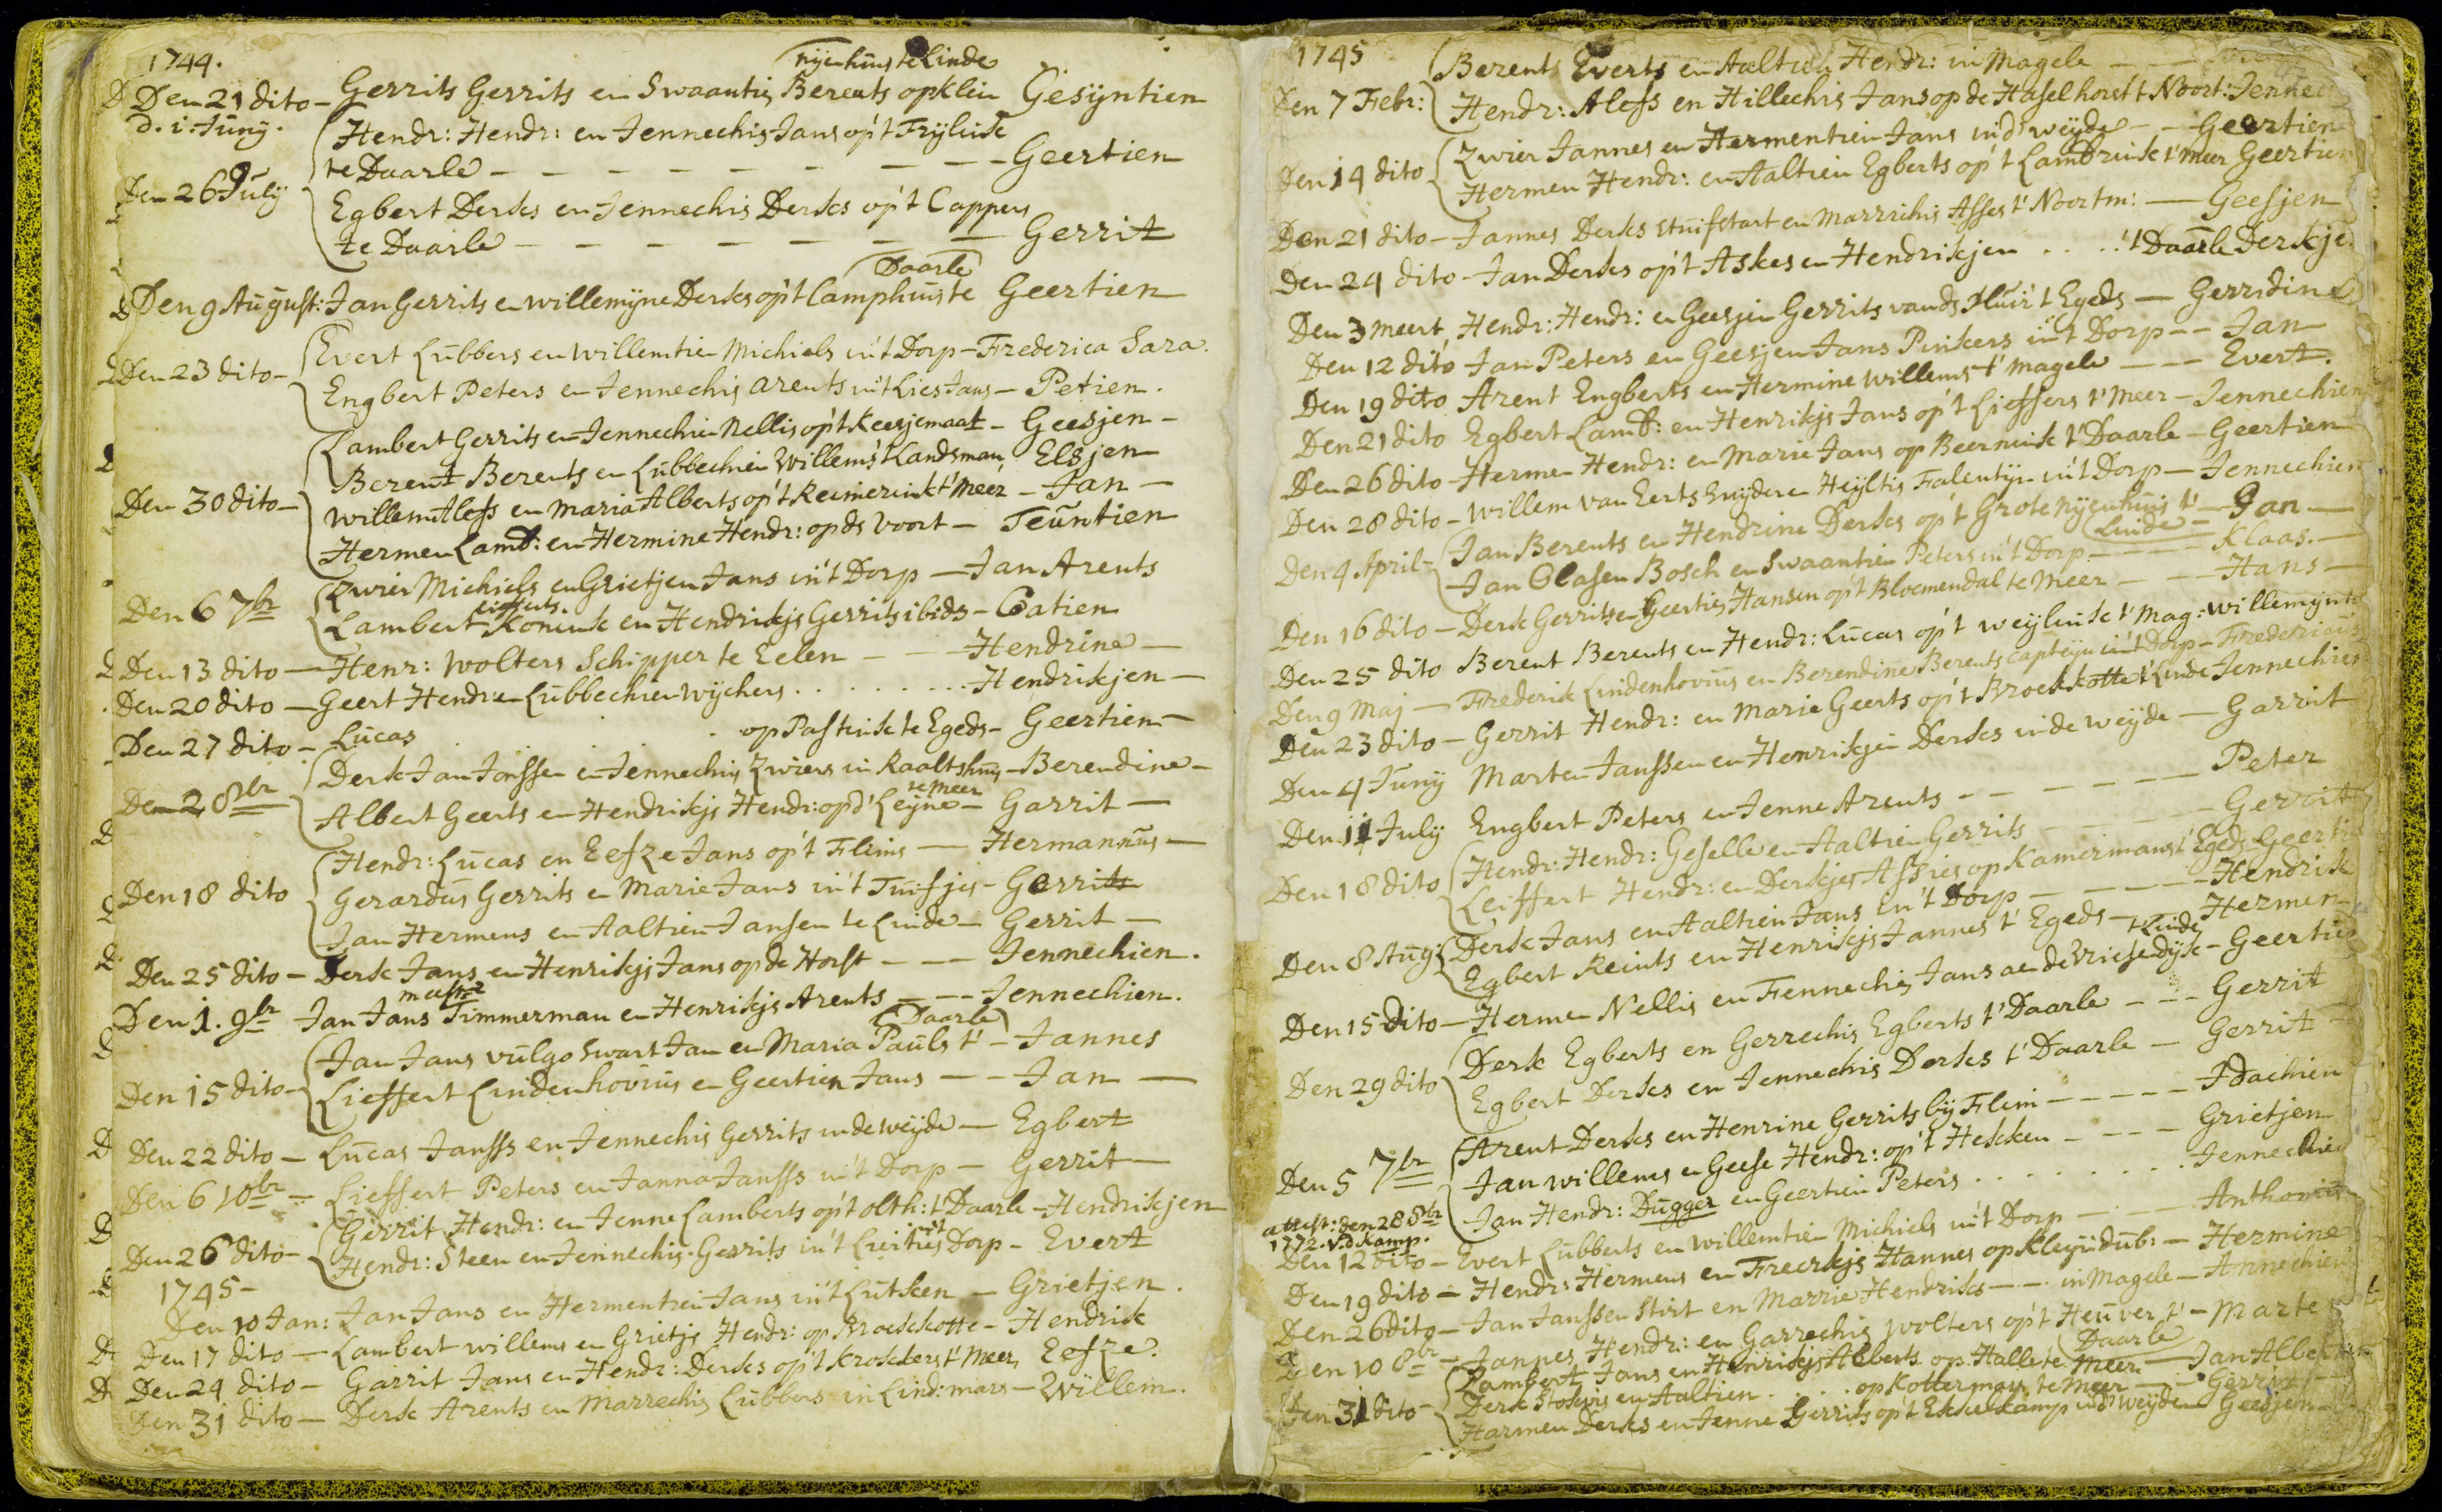 1744.
nijenhuis te Linde
Den 21 dito - Gerrits Gerrits en Swaantis Berents op klein Gesÿntien
d. i. Junÿ. Hendr: Hendr: en Jennechis Jans op't Frijlink
te Daarle - Geertien
Den 26 Julÿ Egbert Derks en Jennechis Derks op't Cappers
te Daarle - Gerrit
Daarle
Den 9 August: Jan Gerrits en willemijne Derks op't Camphuis te Geertien
Den 23 dito - Evert Lubbers en willemtien Michiels in't Dorp - Frederica Sara.
Engbert Peters en Jennechis arents uit Lies Jans - Petien.
Lambert Gerrits en Jennechien Nellis op't Keesjemaat - Geesjen -
Berent Berents en Lubbechien Willems't Landsman Elsjen
Den 30 dito - willem Aless en Maria Alberts op't Reimerink t'meer - Jan -
Hermen Lamb: en Hermine Hendr: op de Voort - Teuntien
Zwier Michiels en Grietjen Jans in't Dorp - Jan Arents
Den 6 7br Lambert Konink en Hendrikjs Gerrits ibide - Catien
Den 13 dito - Henr: Wolters Schipper te Eelen - Hendrine -
Den 20 dito - Geert Hendr en Lubbechien Wijchers . . . Hendrikjen -
Den 27 dito - Lucas . op Pastink te Egede - Geertien -
Derk Jan Jonssen en Jennechis Zwiers in Raaltshuis - Berendine -
te meer
Den 2 8br Albert Geerts en Hendrikjs Hendr: op d' Leijne - Garrit -
Hendr: Lucas en Eefze Jans op't Flims - Hermannus -
Den 18 dito Gerardus Gerrits en Marie Jans in't Tuifjes - Gerrit
Jan Hermens en Aaltien Jansen te Linde - Gerrit -
Den 25 dito - Derk Jans en Henrikjs Jans op de Horst - Jennechien.
Den 1. 9br Jan Jans Timmerman en Henrikjs Arents - Jennechien.
Daarle
Jan Jans vulgo Swart Jan en Maria Pauls t' - Jannes
Den 15 dito - Lieffert Lindenhovius en Geertien Jans - Jan -
Den 22 dito - Lucas Janss en Jennechis Gerrits in de weijde - Egbert
Den 6 10br - Lieffert Peters en Janna Janss in't Dorp - Gerrit -
Gerrit Hendr: en Jenne Lamberts op't olth: t Daarle - Hendrikjen
Den 26 dito - Hendr: Steen en Jennechis Gerrits in't Dorp - Evert
1745 -
Den 10 Jan: Jan Jans en Hermentien Jans in't Lutken - Grietjen.
Den 17 dito - Lambert willems en Grietjs Hendr: op Broekkotte - Hendrik
Den 24 dito - Garrit Jans en Hendr: Derks op't Krokkers t' Meer Eefze.
Den 31 dito - Derk Arents en Marrechis Lubbers in Lind: mars - Willem.
1745 Berent Everts en Aaltien Hendr: in Magele
Den 7 Febr: Hendr: Aless en Hillechis Jans op de Haselhorst t Noort: Jennec
Zwier Jannes en Hermentien Jans in d' weijde - Geertien
Den 14 dito Hermen Hendr: en Aaltien Egberts op't Lambrink t' meer Geertien
Den 21 dito - Jannes Derks stuifstart en Marrichis Asses t' Noortm: - Geesjen
Den 24 dito - Jan Derks op't Askes en Hendrikjen . . . . 't Daarle Derkje
Den 3 meert Hendr: Hendr: en Geesjen Gerrits vande Pluir t Egede - Gerridine
Den 12 dito Jan Peters en Geesjen Jans Pinkers in't Dorp - Jan
Den 19 dito Arent Engberts en Hermine Willems t' magele - Evert.
Den 21 dito Egbert Lamb: en Henrikjs Jans op't Lieffers t' meer - Jennechien
Den 26 dito - Hermen Hendr: en Marie Jans op Beernink t' Daarle - Geertien
Den 28 dito - Willem van Eerts Snijder en Heijltis Falentijn in't Dorp - Jennechien
Den 4 April - Jan Berents en Hendrine Derks op't Grote nijenhuis t' Linde - Jan -
Jan Clasen Bosch en Swaantien Peters in't Dorp - Klaas. -
Den 16 dito - Derk Gerrits en Geertis Hansen op't Bloemendal te Meer - Hans -
Den 25 dito Berent Berents en Hendr: Lucas op't weijlink t' Mag: willemijn
Den 9 Maj - Frederik Lindenhovius en Berendine Berents Capteijn in't Dorp - Fredericus
Den 23 dito - Gerrit Hendr: en Marie Geerts op't Broekkotte t' Linde Jennechien
Den 4 Junÿ Marten Janssen en Henrikjen Derks in de weijde - Garrit
Den 11 July Engbert Peters en Jenne Arents - Peter
Den 18 dito Hendr: Hendr: Geselle en Aaltien Gerrits - Gerrit
Leiffert Hendr: en Derkjes Assies op Kamermans t' Egede Geerti
Den 8 Aug: Derk Jans en Aaltien Jans in't Dorp - Hendrik
Egbert Reints en Henrikjs Jannes t' Egede - Hermen
t Linde
Den 15 Dito - Hermen Nellis en Fennechis Jans aen de Vriesendijk - Geertien
Derk Egberts en Gerrechis Egberts t' Daarle - Gerrit
Den 29 dito Egbert Derks en Jennechis Derks t' Daarle - Gerrit -
Arent Derks en Henrine Gerrits bij Flim - Idachien
Den 5 7br Jan willems en Geese Hendr: op't Hekken - Grietjen
Jan Hendr: Dugger en Geertien Peters . . . Jennechien
attest: den 28 8br
1772. v.d Kamp.
Den 12 dito - Evert Lubberts en willemtien Michiels in't Dorp - Anthoni
Den 19 dito - Hendr: Hermens en Freerkjs Hannes op Kleijn dub: - Hermine
Den 26 dito - Jan Janssen Stirt en Marrie Hendriks - in Magele - Annechien
Den 10 8br - Jannes Hendr: en Garrechis Wolters op't Heuver t' Daarle - Marte
Lambert Jans en Henrikjs Alberts op Halle te Meer - Jan Albe
Den 31 dito - Derk Stokvis en Aaltien . . . . op Kotterman te Meer - Gerrit
Harmen Derks en Jenne Gerrits op't Ekkelkamp in d' weijde Geesjen